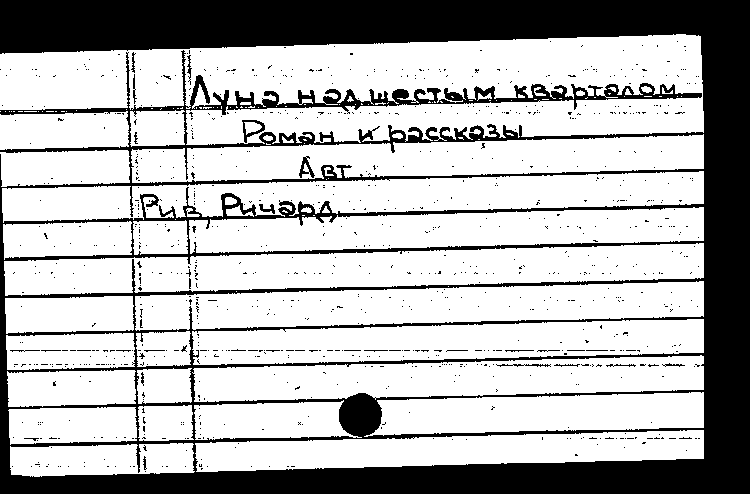 Луна над шестым кварталом
Роман и рассказы
Авт.:
Рив, Ричард.